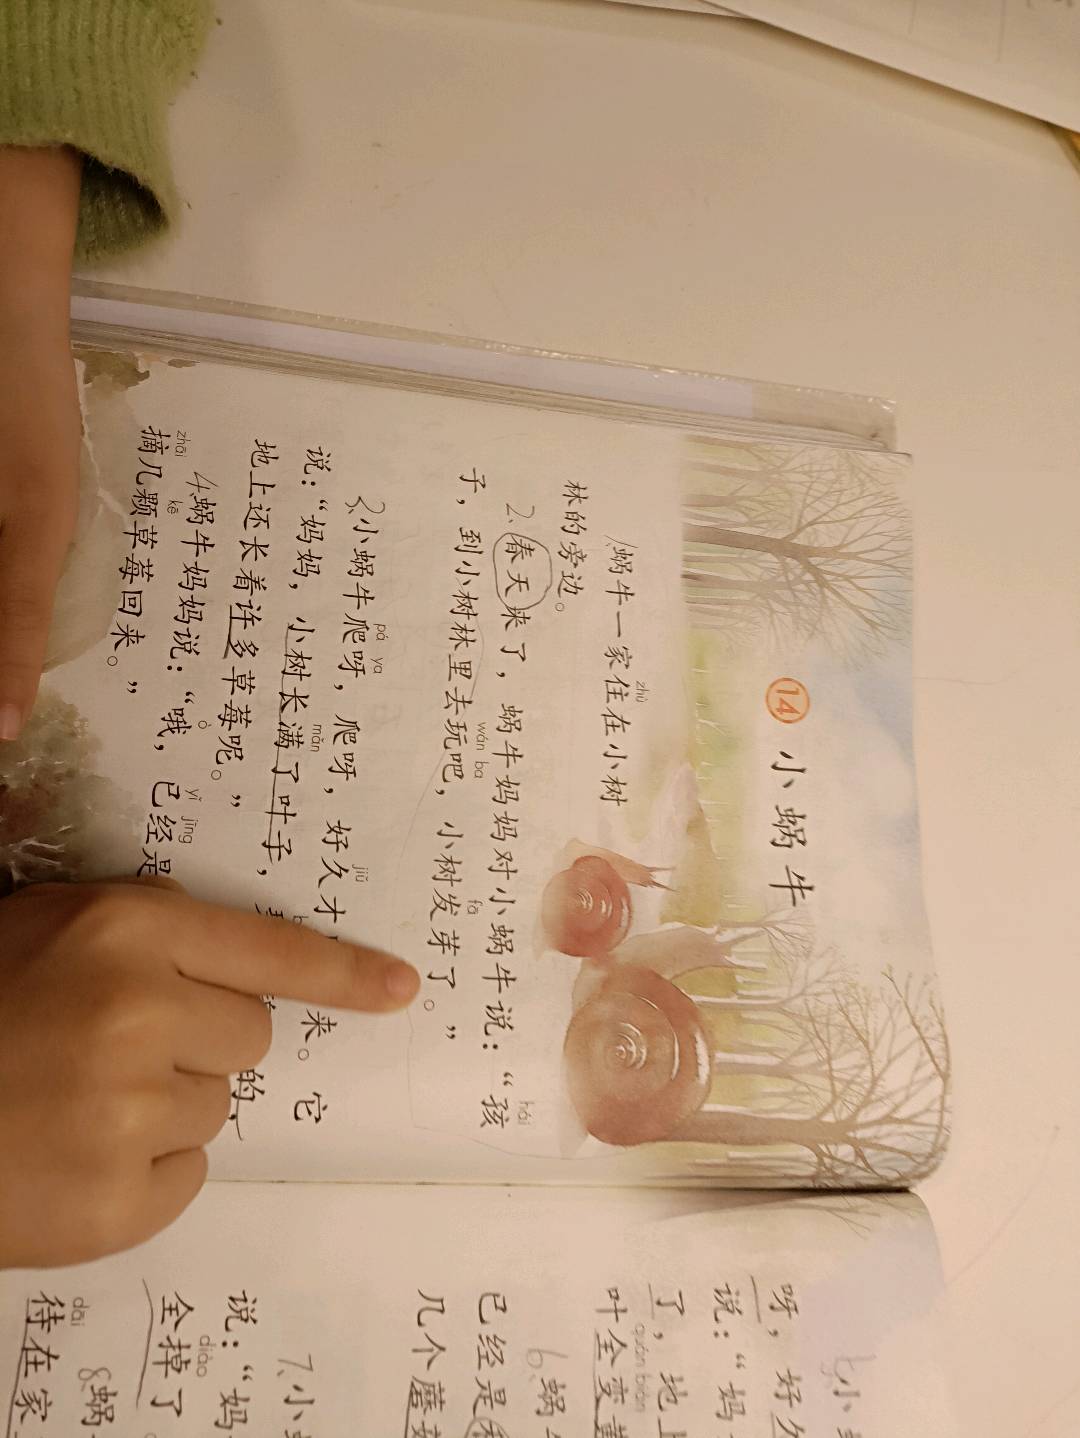 14 小蜗牛
zhù
1、蜗牛一家住在小树
林的旁边。
hái
2、春天来了，蜗牛妈妈对小蜗牛说：“孩
wán ba fā
子，到小树林里去玩吧，小树发芽了。”
pá ya jiǔ
3、小蜗牛爬呀，爬呀，好久才 来。它
mǎn
说：“妈妈，小树长满了叶子， 的，
地上还长着许多草莓呢。”
ò yǐ jīng
4、蜗牛妈妈说：“哦，已经是
zhāi kē
摘几颗草莓回来。”
5、小
呀，好久
说：“妈
了，地上
quán biàn
叶全变
6、蜗
已经是
几个蘑菇
7、小
说：“妈
diào
全掉了
8、蜗
dāi
待在家